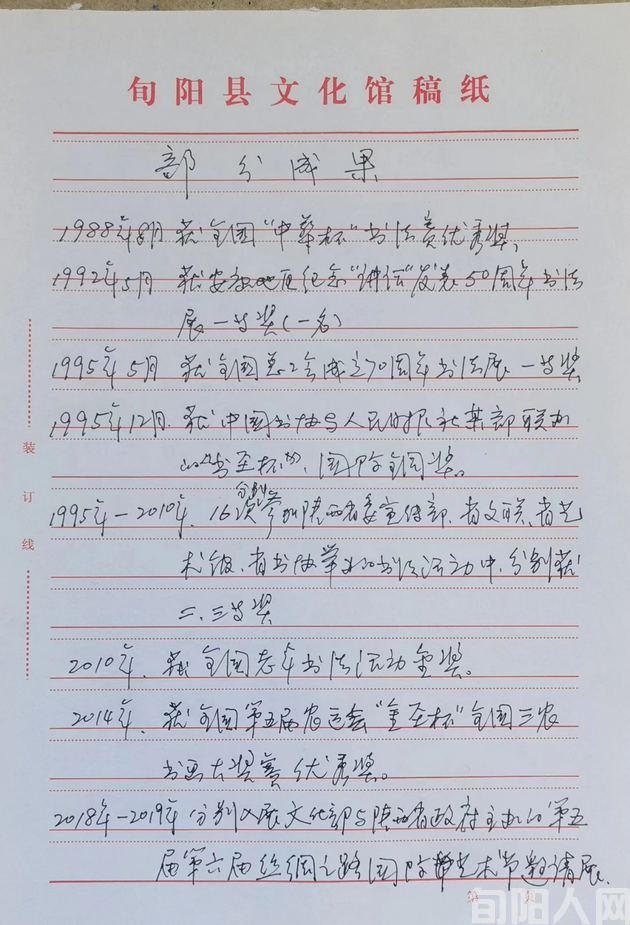 旬阳县文化馆稿纸
部分成果
1988年8月 获全国"中华杯"书法赛优秀奖,
1992年5月 获安康地区纪念"讲话"发表50周年书法
展一等奖(一名)
1995年5月 获全国总工会成立70周年书法展一等奖
1995年12月. 获中国书协与人民日报社某部联办
的"书圣杯", 国际铜奖。
1995年—2010年, 16次分别参加陕西省委宣传部、省文联、省艺
术馆、省书协举办的书法活动中,分别获
二、三等奖
2010年, 获全国老年书法活动金奖。
2014年, 获全国第五届农运会"金圣杯"全国三农
书画大奖赛优秀奖。
2018年—2019年 分别入展文化部与陕西省政府主办的第五
届第六届丝绸之路国际艺术节邀请展,
装订线
第 页
旬阳人网